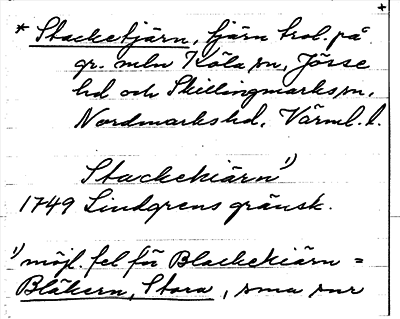 +
* Stacketjärn, tjärn trol. på
gr. mln Köla sn, Jösse
hd och Skillingmarks sn,
Nordmarks hd, Värml. l.
Stackekiärn¹⁾
1749 Lindgrens gränsk.
¹⁾ möjl. fel för Blackekiärn =
Bläkern, Stora, sma snr